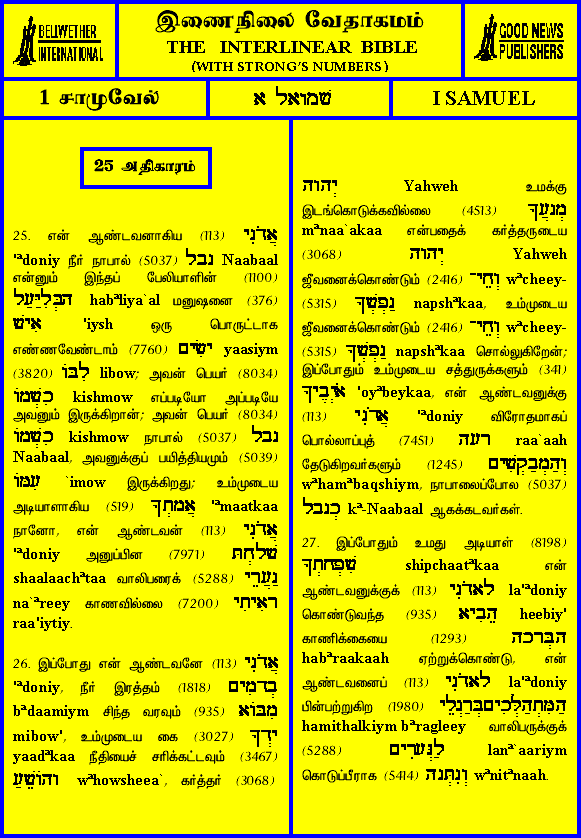 BELLWETHER
INTERNATIONAL
இணைநிலை வேதாகமம்
THE INTERLINEAR BIBLE
(WITH STRONG'S NUMBERS)
GOOD NEWS
PUBLISHERS
1 சாமுவேல்
שמואל א
I SAMUEL
25 அதிகாரம்
25. என் ஆண்டவனாகிய (113) אֲדֹנִי
'ªdoniy நீர் நாபால் (5037) נבל Naabaal
என்னும் இந்தப் பேலியாளின் (1100)
הבְּלִיַּעַל habªliya`al மனுஷனை (376)
אִישׁ 'iysh ஒரு பொருட்டாக
எண்ணவேண்டாம் (7760) ישִׂים yaasiym
(3820) לִבּוֹ libow; அவன் பெயர் (8034)
כִשְׁמוֹ kishmow எப்படியோ அப்படியே
அவனும் இருக்கிறான்; அவன் பெயர் (8034)
כִשְׁמוֹ kishmow நாபால் (5037) נבל
Naabaal, அவனுக்குப் பயித்தியமும் (5039)
עִמּוֹ `imow இருக்கிறது; உம்முடைய
அடியாளாகிய (519) אֲמתְךָ 'ªmaatkaa
நானோ, என் ஆண்டவன் (113) אֲדֹנִי
'ªdoniy அனுப்பின (7971) שׁלחְתּ
shaalaachªtaa வாலிபரைக் (5288) נַעֲרֵי
na`ªreey காணவில்லை (7200) ראִיתִי
raa'iytiy.
26. இப்போது என் ஆண்டவனே (113) אֲדֹנִי
'ªdoniy, நீர் இரத்தம் (1818) בְדמִים
bªdaamiym சிந்த வரவும் (935) מִבּוֹא
mibow', உம்முடைய கை (3027) ידְךָ
yaadªkaa நீதியைச் சரிக்கட்டவும் (3467)
והוֹשֵׁעַ wªhowsheea`, கர்த்தர் (3068)
יְהוה Yahweh உமக்கு
இடங்கொடுக்கவில்லை (4513) מְנעֲךָ
mªnaa`akaa என்பதைக் கர்த்தருடைய
(3068) יְהוה Yahweh
ஜீவனைக்கொண்டும் (2416) וְחֵי־ wªcheey-
(5315) נַפְשְׁךָ napshªkaa, உம்முடைய
ஜீவனைக்கொண்டும் (2416) וְחֵי־ wªcheey-
(5315) נַפְשְׁךָ napshªkaa சொல்லுகிறேன்;
இப்போதும் உம்முடைய சத்துருக்களும் (341)
אֹיְבֶיךָ 'oyªbeykaa, என் ஆண்டவனுக்கு
(113) אֲדֹנִי 'ªdoniy விரோதமாகப்
பொல்லாப்புத் (7451) רעה raa`aah
தேடுகிறவர்களும் (1245) וְהַמְבַקְשִׁים
wªhamªbaqshiym, நாபாலைப்போல (5037)
כְנבל kª-Naabaal ஆகக்கடவர்கள்.
27. இப்போதும் உமது அடியாள் (8198)
שִׁפְחתְךָ shipchaatªkaa என்
ஆண்டவனுக்குக் (113) לַאדֹנִי la'ªdoniy
கொண்டுவந்த (935) הֵבִיא heebiy'
காணிக்கையை (1293) הַבְּרכה
habªraakaah ஏற்றுக்கொண்டு, என்
ஆண்டவனைப் (113) לַאדֹנִי la'ªdoniy
பின்பற்றுகிற (1980) הַמִּתְהַלְּכִיםבְּרַגְלֵי
hamithalkiym bªragleey வாலிபருக்குக்
(5288) לַנְּערִים lanª`aariym
கொடுப்பீராக (5414) וְנִתְּנה wªnitªnaah.